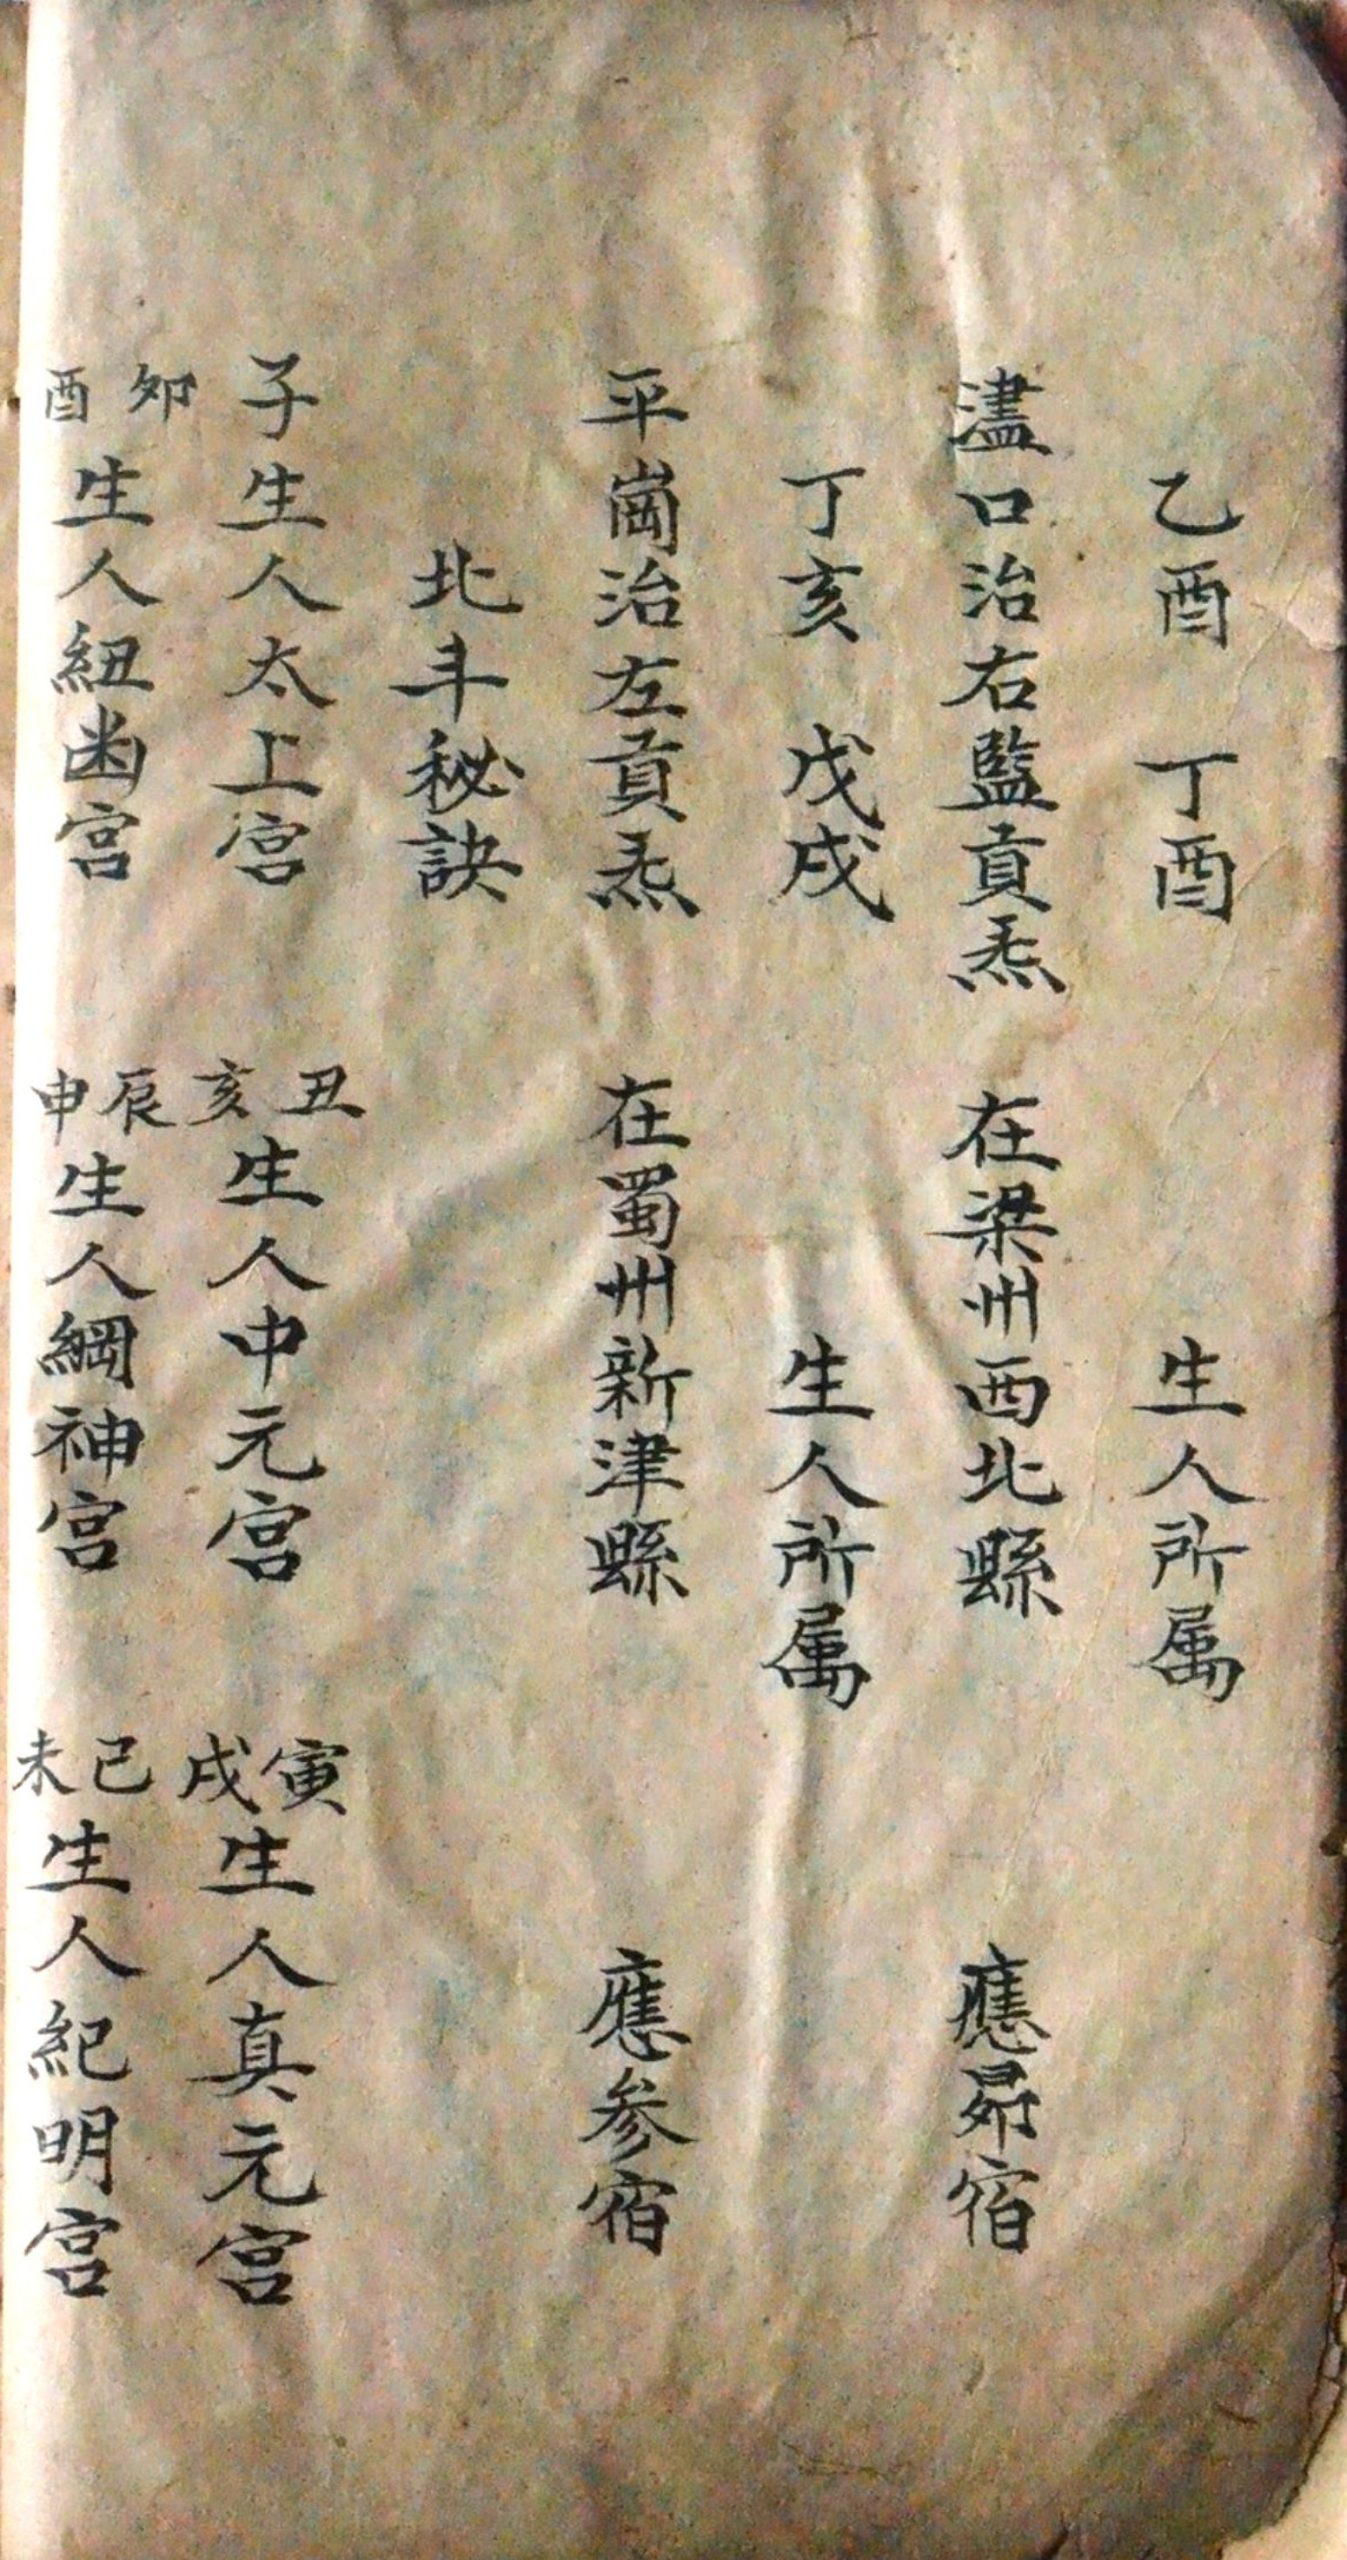 乙酉 丁酉 生人所属
濜口治右監貢炁 在梁州西北縣 應昴宿
丁亥 戊戌 生人所属
平崗治左貢炁 在蜀州新津縣 應参宿
北斗秘訣
子生人太上宮 丑亥生人中元宮 寅戌生人真元宮
卯酉生人紐幽宮 辰申生人綱神宮 巳未生人紀明宮